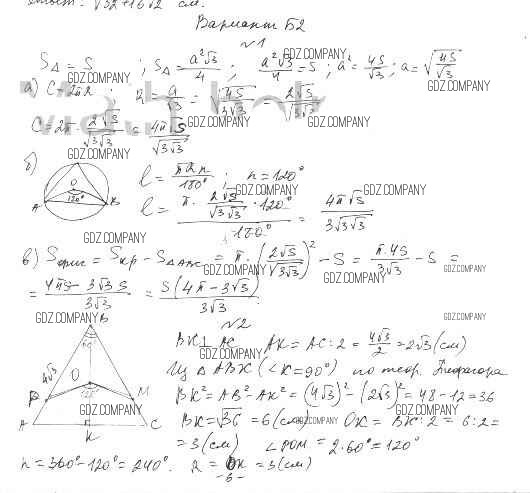 ответ: √32+16√2 см.
Вариант Б2
№1
S△ = S ; S△ = a²√3/4 ; a²√3/4 = S ; a² = 4S/√3 ; a = √(4S/√3)
а) C = 2πR ; R = a/√3 = √4S/√(3√3) = 2√S/√(3√3)
C = 2π · 2√S/√(3√3) = 4π√S/√(3√3)
б) l = πRn/180° ; n = 120°
O
120°
A B
l = π · 2√S/√(3√3) · 120° / 180° = 4π√S/3√(3√3)
в) Sфиг = Sкр − S△ABC = π · (2√S/√(3√3))² − S = π·4S/3√3 − S =
= 4πS − 3√3S/3√3 = S(4π − 3√3)/3√3
№2
B
60°
4√3
O
P M
A K C
BK⊥AC AK = AC : 2 = 4√3/2 = 2√3 (см)
Из △ABK (∠K = 90°) по теор. Пифагора
BK² = AB² − AK² = (4√3)² − (2√3)² = 48 − 12 = 36
BK = √36 = 6 (см) OK = BK : 2 = 6 : 2 =
= 3 (см) ∠POM = 2·60° = 120°
n = 360° − 120° = 240°. R = OK = 3 (см)
-6-
GDZ.COMPANY